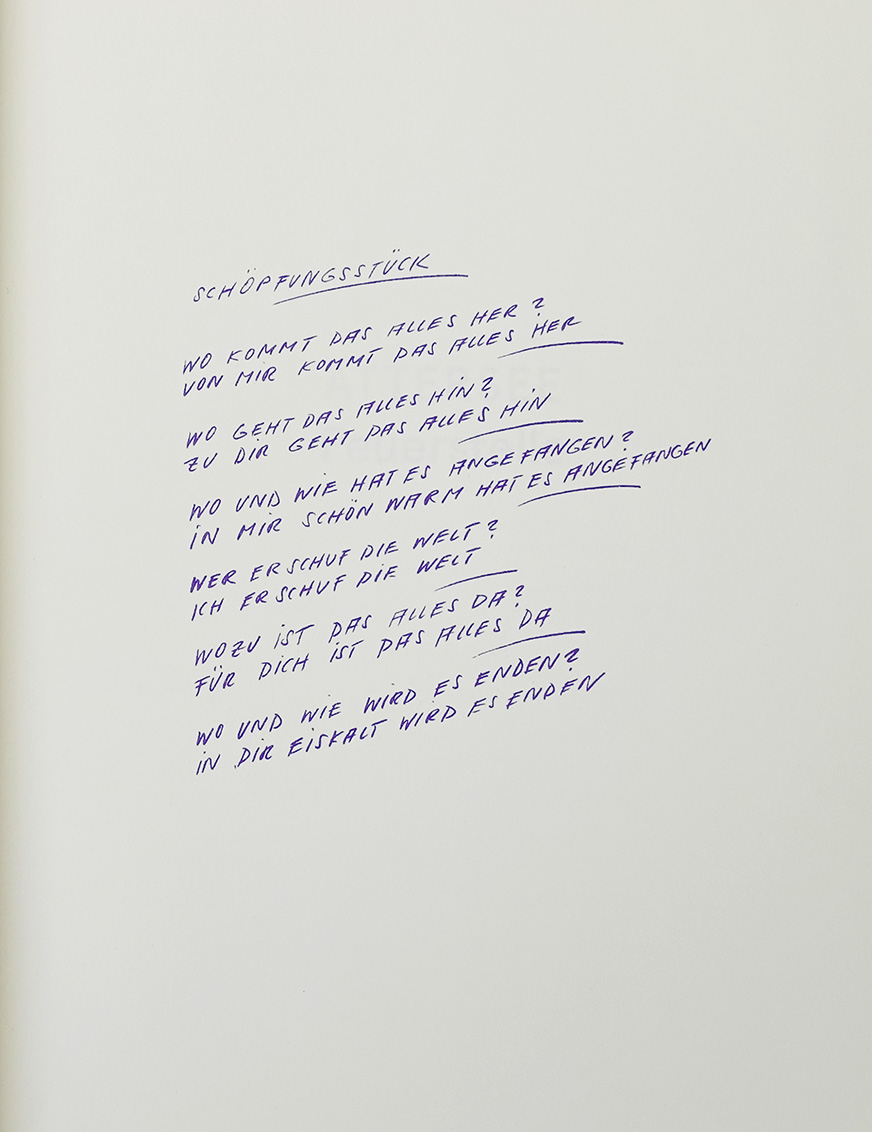 SCHÖPFUNGSSTÜCK
WO KOMMT DAS ALLES HER?
VON MIR KOMMT DAS ALLES HER
WO GEHT DAS ALLES HIN?
ZU DIR GEHT DAS ALLES HIN
WO UND WIE HAT ES ANGEFANGEN?
IN MIR SCHÖN WARM HAT ES ANGEFANGEN
WER ERSCHUF DIE WELT?
ICH ERSCHUF DIE WELT
WOZU IST DAS ALLES DA?
FÜR DICH IST DAS ALLES DA
WO UND WIE WIRD ES ENDEN?
IN DIR EISKALT WIRD ES ENDEN